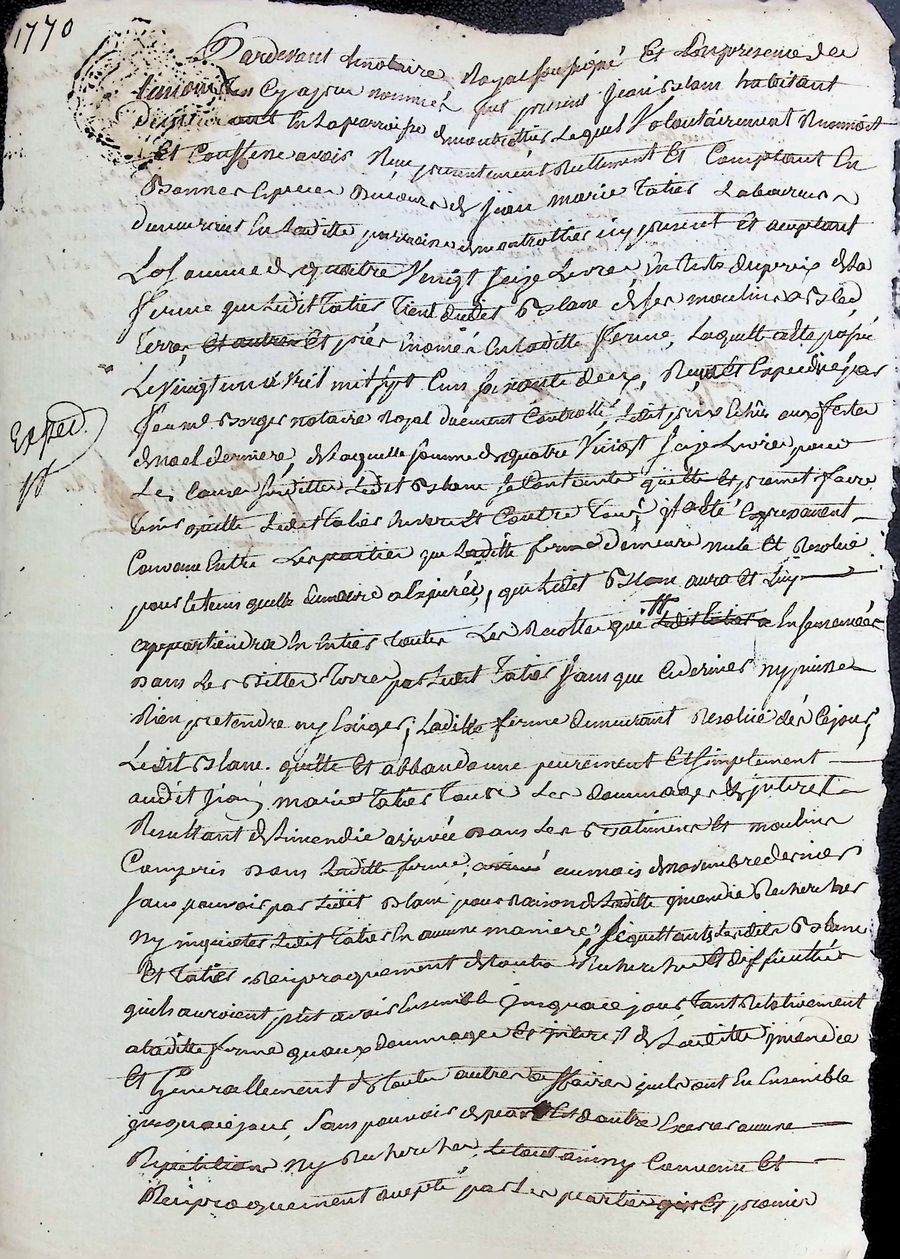 1770
Pardevant le notaire Royal soussigné Et En presence des
temoins Cy apres nommés fut present Jean Blanc habitant
En La parroisse de montrottier Lequel Volontairement Reconnoit
Et Confesse avoir Reçu presentement Reellement Et Comptant En
Bonnes Especes de Jean marie Tatier Laboureur
demeurant En Laditte parroisse de montrottier icy present Et acceptant
La somme de quatre Vingt Seize Livres du prix de La
ferme que Ledit Tatier Tient dudit Blanc de ses moulins
terres et autres Et prés només En laditte ferme, Laquelle passée
Le Vingt un avril mil sept Cens soixante deux, Reçu Et Expedié par
notaire Royal duement Controllé, Ledit prix Echu aux festes
de noel dernier, de Laquelle somme de quatre Vingt Seize Livres pour
Expéd.
Les Causes susdittes Ledit Blanc se Contente quitte Et promet faire
tenir quitte Ledit Tatier Envers Et Contre Tous, Et a Eté
Convenu Entre Les parties que Laditte ferme demeure nulle Et Resolue
pour le tems quelle demeure a Expirer, que Ledit Blanc aura Et Luy
appartiendra En Entier toutes Les Recoltes qui Ensemencées
dans Les dittes Terres par Ledit Tatier sans que Ce dernier ny puisse
Rien pretendre ny Exiger, Laditte ferme demeurant Resolue dés Ce jour,
Ledit Blanc quitte Et abbandonne purement Et simplement
audit Jean marie Tatier Tous Les dommages Et interets
Resultant de Lincendie arrivée dans Les Batimens Et moulins
Compris dans Laditte ferme, au mois de novembre dernier
sans pouvoir par Ledit Blanc pour Raison de Laditte incendie Rechercher
ny inquieter Ledit Tatier En aucune maniere, se quittants Lesdits Blanc
Et Tatier Reciproquement de toutes Recherches Et difficultés
quils auroient peut avoir Ensemble jusqua ce jour Tant Relativement
a laditte ferme quaux dommages Et interets de Laditte incendie
Et Generallement de toutes autres affaires quils ont Eu Ensemble
jusqua ce jour, sans pouvoir de part Et dautre Exercer aucune
Repetition ny Recherches, Le tout ainsy Convenu Et
Reciproquement accepté par Les parties Et promis